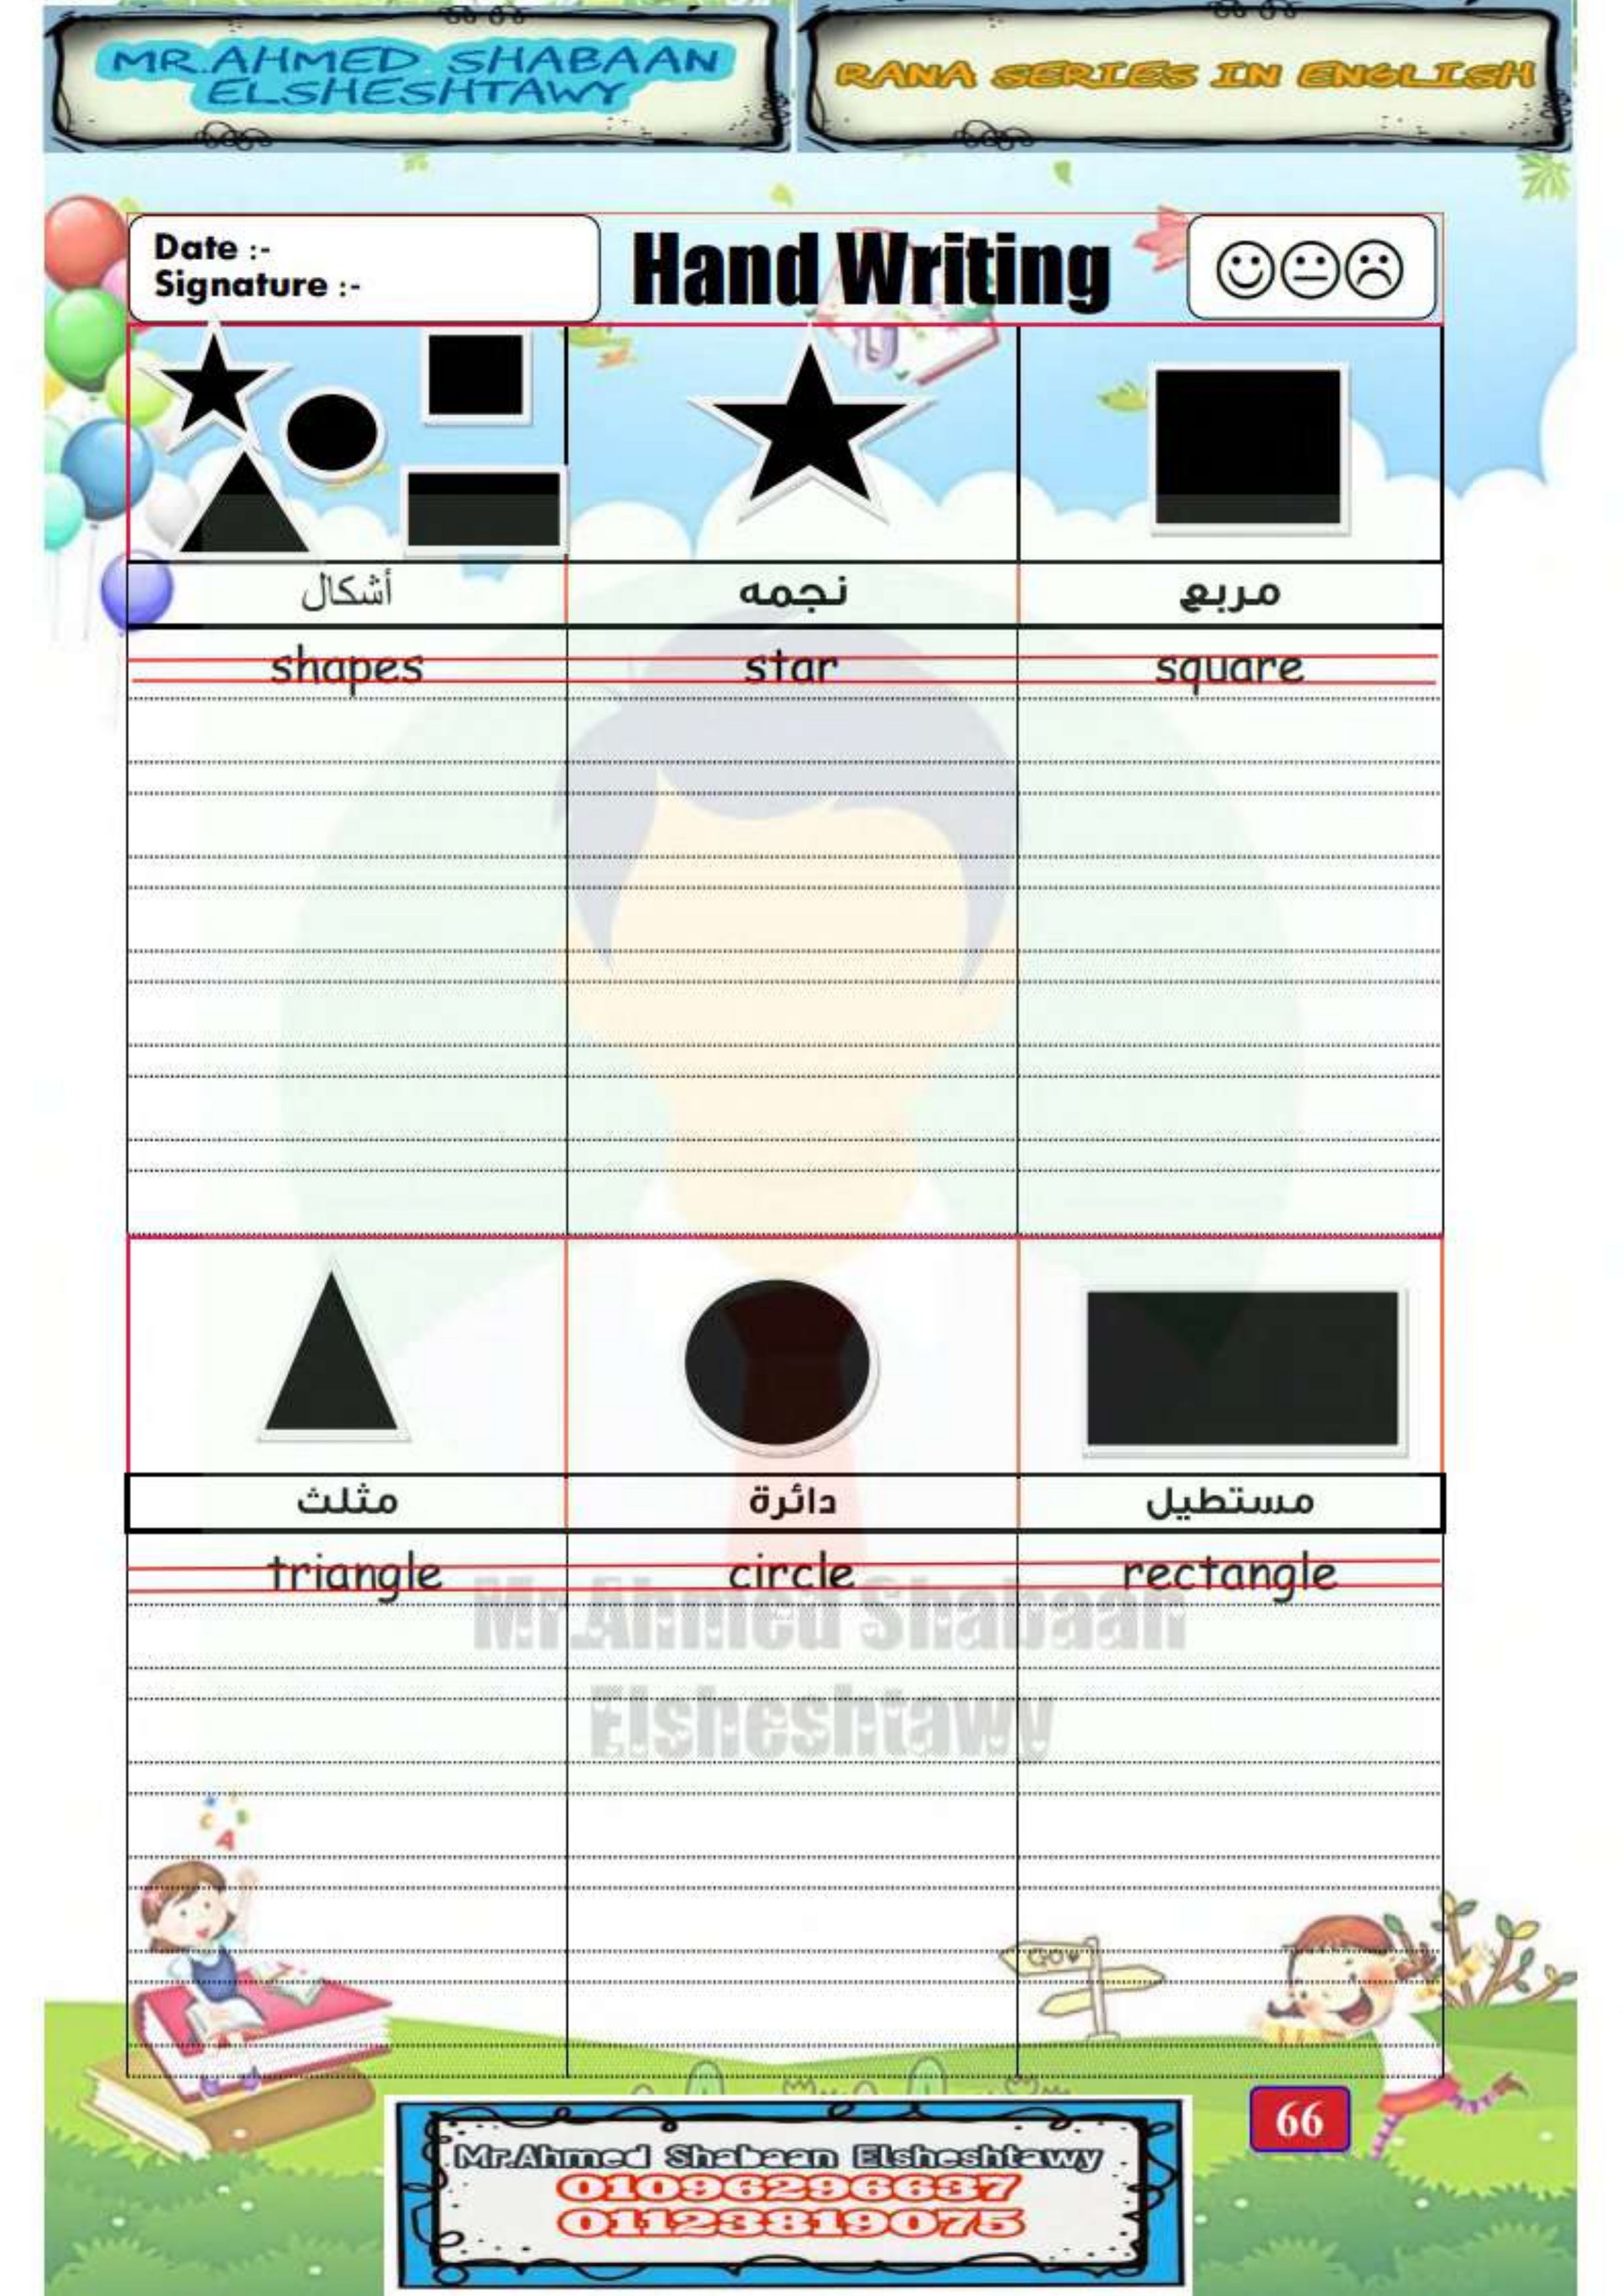 MR.AHMED SHABAAN
ELSHESHTAWY
RANA SERIES IN ENGLISH
Date :-
Signature :-
Hand Writing
أشكال نجمه مربع
shapes star square
مثلث دائرة مستطيل
triangle circle rectangle
Mr.Ahmed Shabaan
Elsheshtawy
C A
GO
66
Mr.Ahmed Shabaan Elsheshtawy
01096296637
01123819075